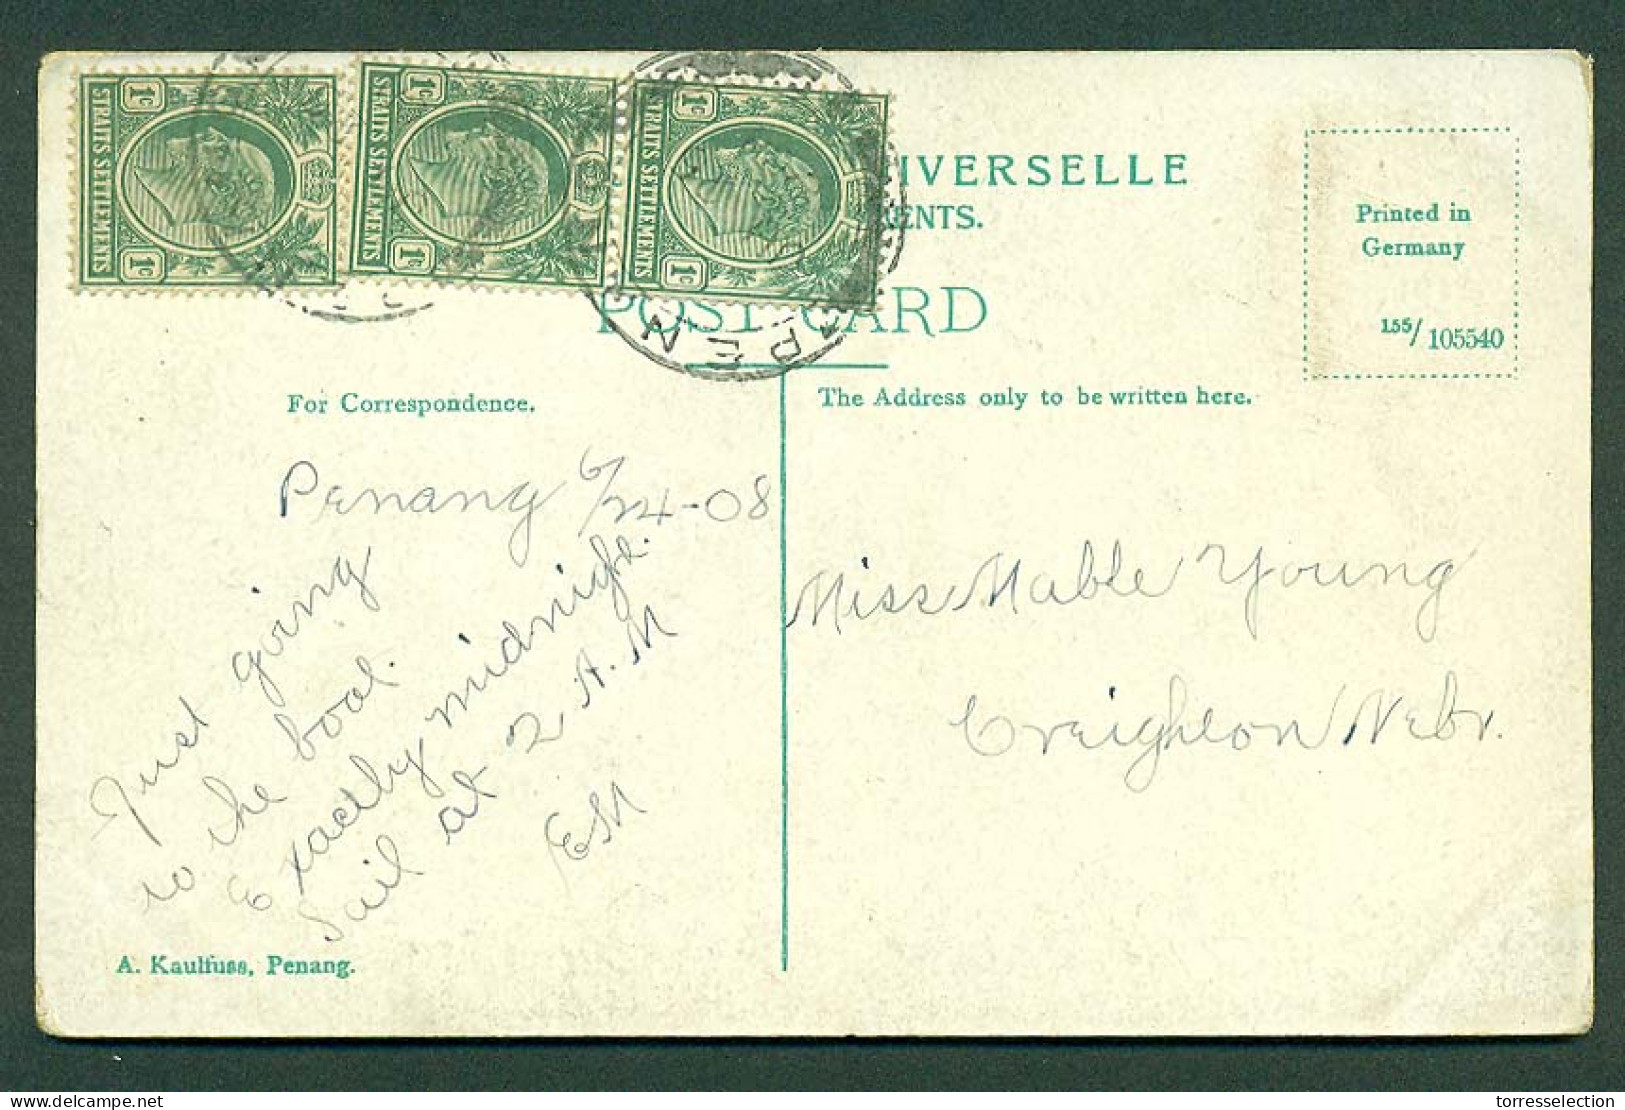 1c STRAITS SETTLEMENTS 1c
1c STRAITS SETTLEMENTS 1c
1c STRAITS SETTLEMENTS 1c
PEN
IVERSELLE
ENTS.
POST CARD
Printed in
Germany
155/105540
For Correspondence.
The Address only to be written here.
Penang 6/24-08
Just going
to the boat.
Exactly midnight.
Sail at 2 A.M
ESM
Miss Mable Young
Creighton Nebr.
A. Kaulfuss, Penang.
delcampe.net
torresselection